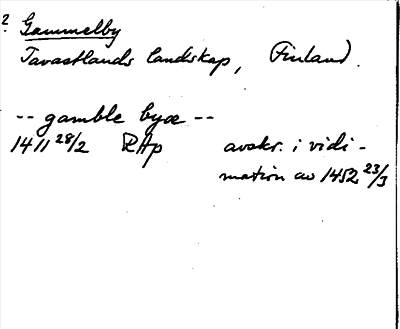 ? Gammelby
Tavastlands landskap, Finland.
-- gamble byæ --
1411 28/2 RAp avskr. i vidi-
mation av 1452 23/3